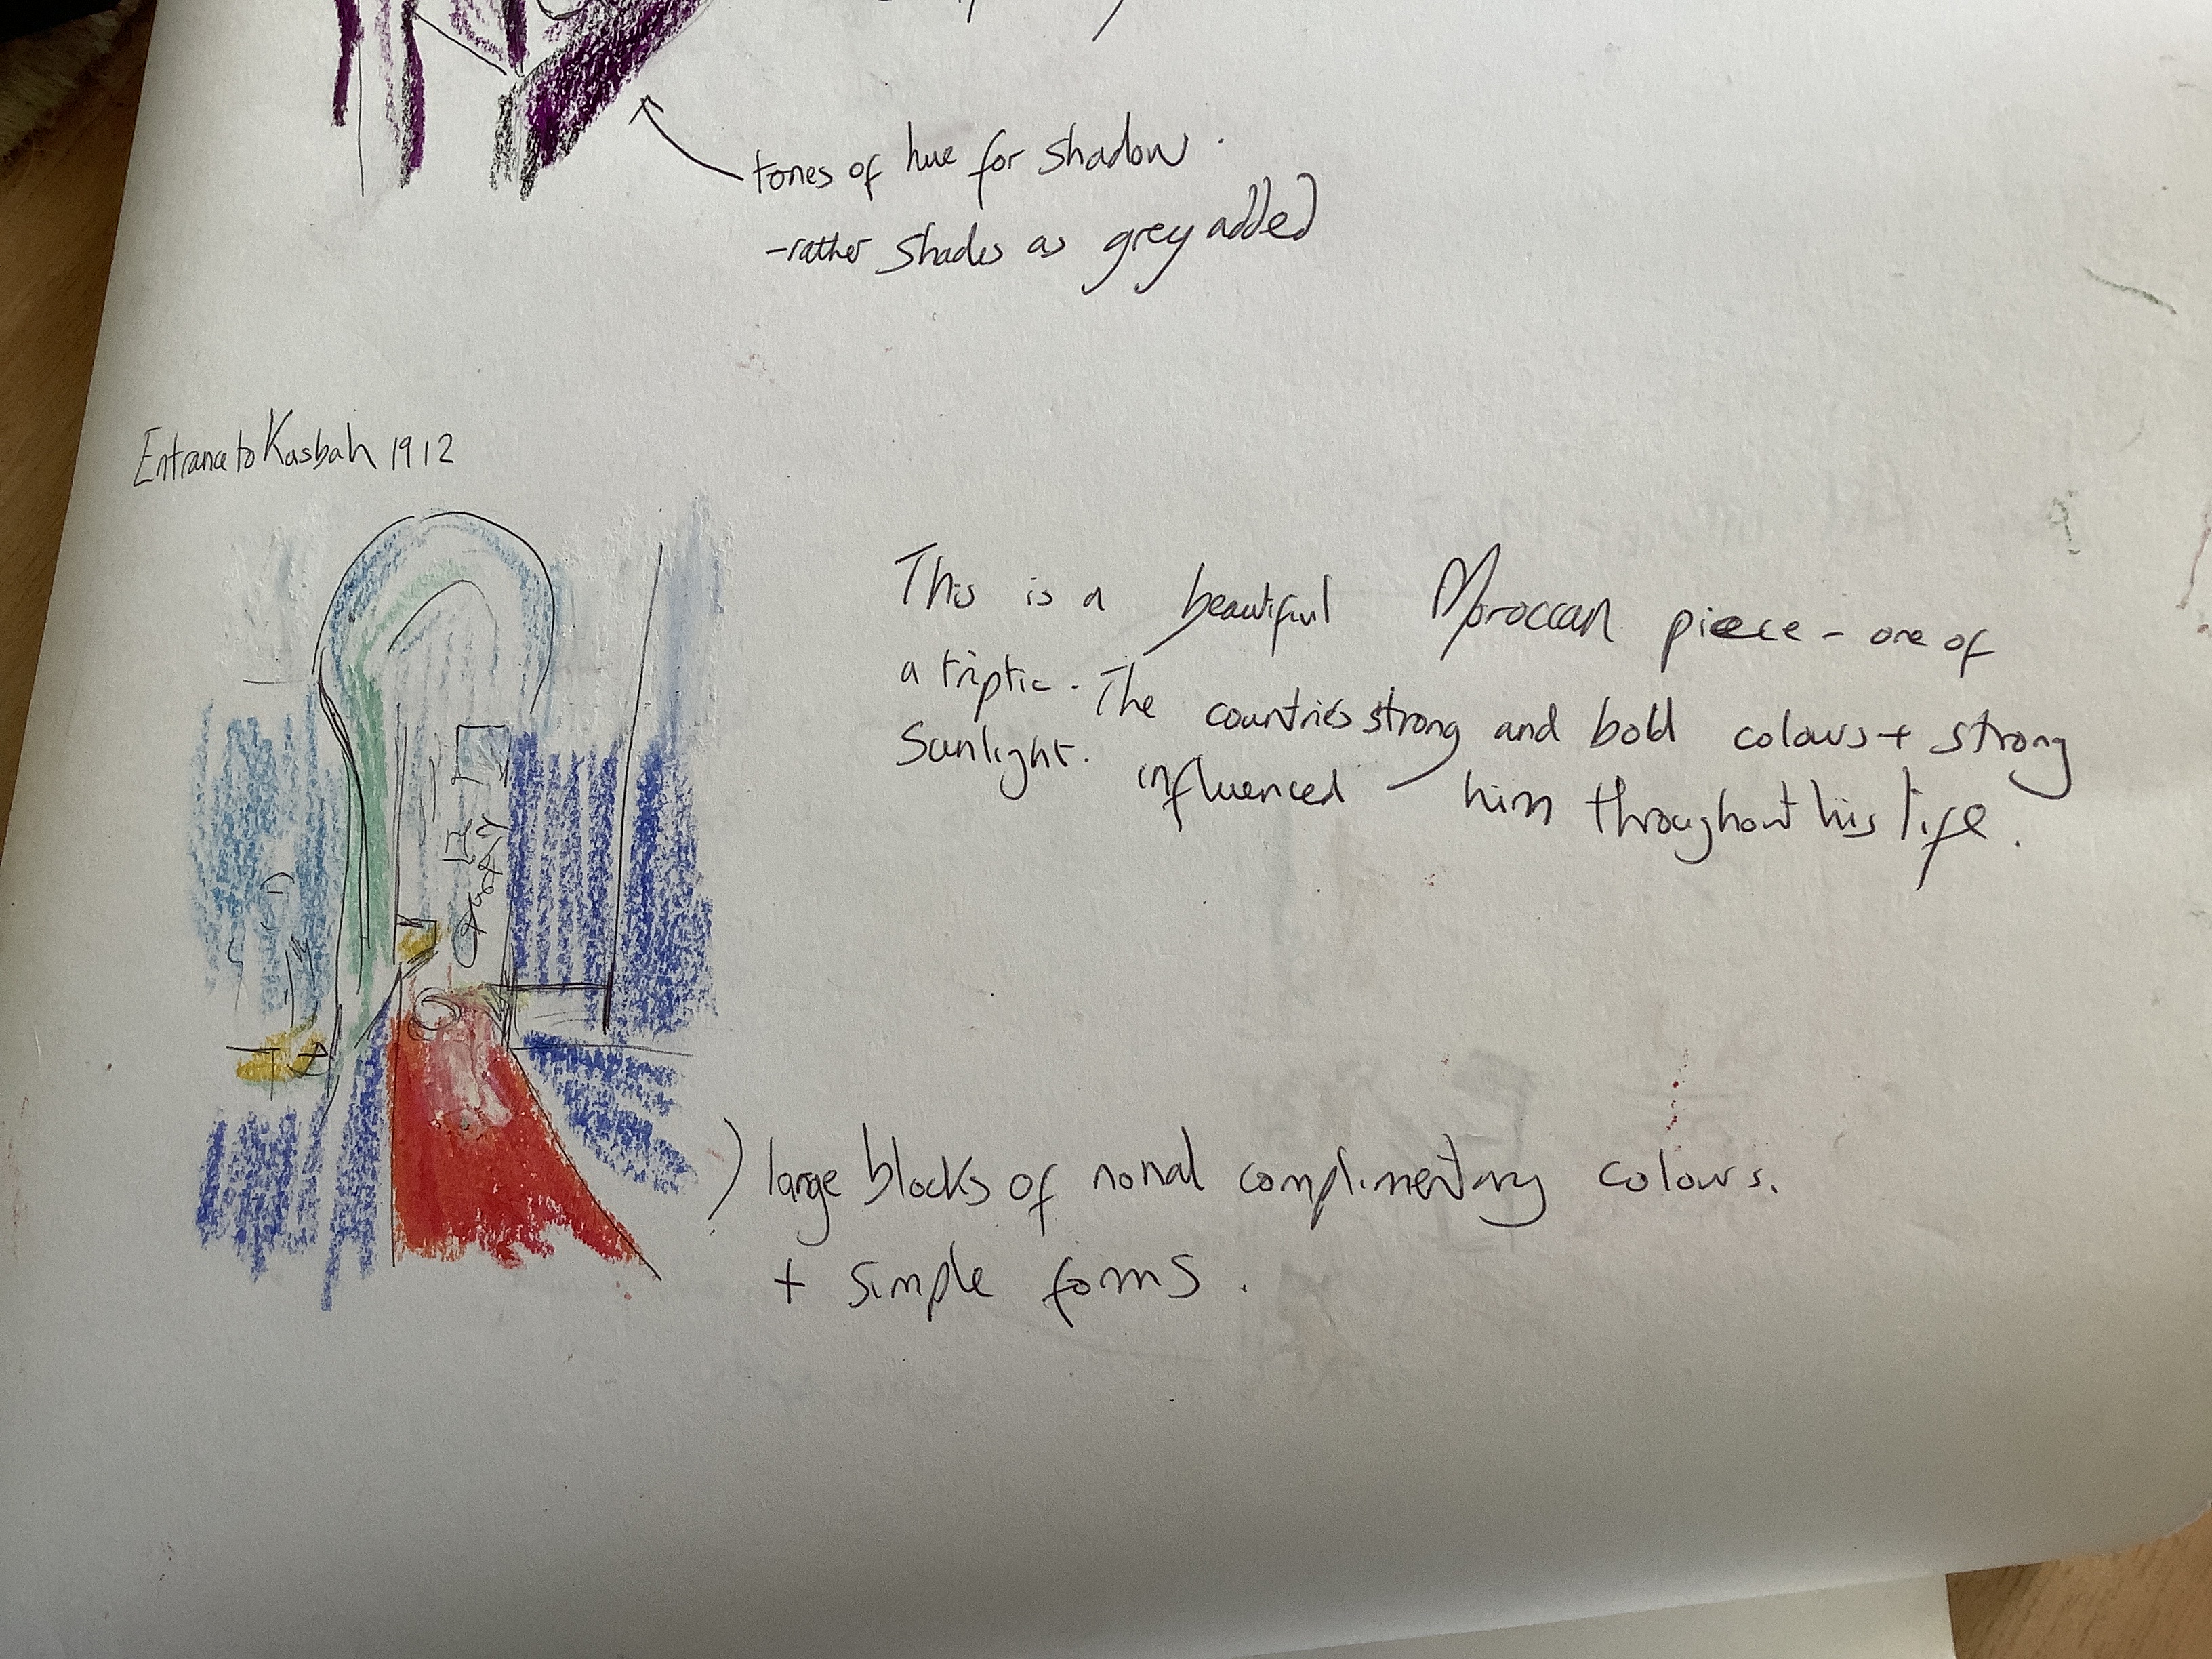 tones of hue for shadow.
- rather shades as grey added
Entrance to Kasbah 1912
This is a beautiful Moroccan piece - one of
a triptic. The countries strong and bold colours + strong
Sunlight. influenced him throughout his life.
large blocks of complimentary colours.
+ simple forms.